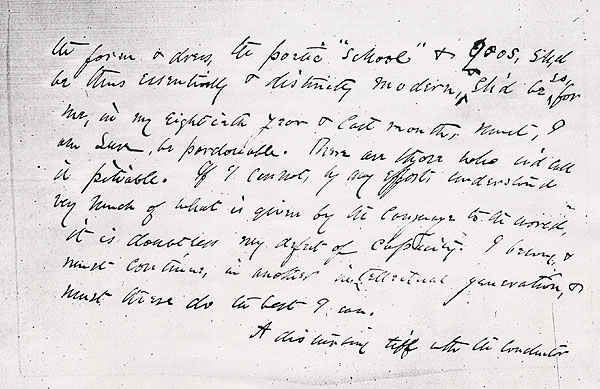 the form & dress, the poetic "School" & 1908, sh'd
be thus essentially & distinctly modern, sh'd be, so, for
me, in my eightieth year & last month, must, I
am sure, be pardonable. There are those who w'd call
it pitiable. If I cannot, by any efforts, understand
very much of what is given by the to the world",
it is doubtless my defect of capacity. I belong, &
must continue, in another intellectual generation, &
must there do the best I can.
A disturbing tiff with the conductor